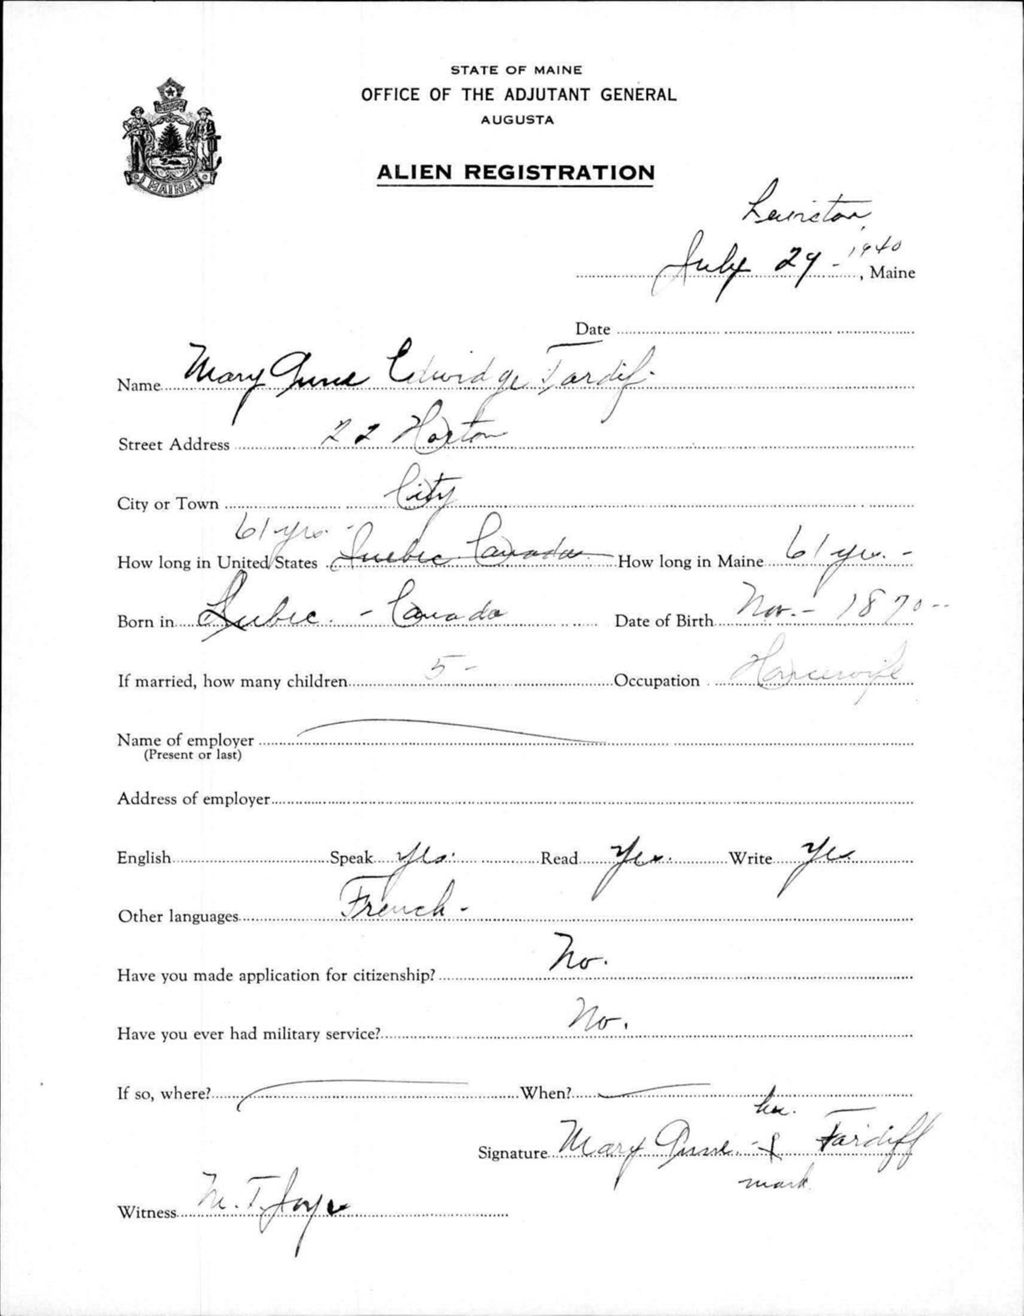 STATE OF MAINE
OFFICE OF THE ADJUTANT GENERAL
AUGUSTA
ALIEN REGISTRATION
MAINE
Lewiston,
July 29 - 1940, Maine
Date
Name Mary Anne Edwidge Tardif.
Street Address 22 Horton
City or Town City
61 yrs -
How long in United States Quebec Canada How long in Maine 61 yrs. -
Born in Qubec. - Canada Date of Birth Nov. - 1870 -
If married, how many children 5 - Occupation Housewife
Name of employer
(Present or last)
Address of employer
English Speak Yes. Read Yes. Write Yes
Other languages French -
Have you made application for citizenship? No.
Have you ever had military service? No.
If so, where? When?
her
Signature Mary Anne - Tardiff
mark
Witness M. T. Joyce